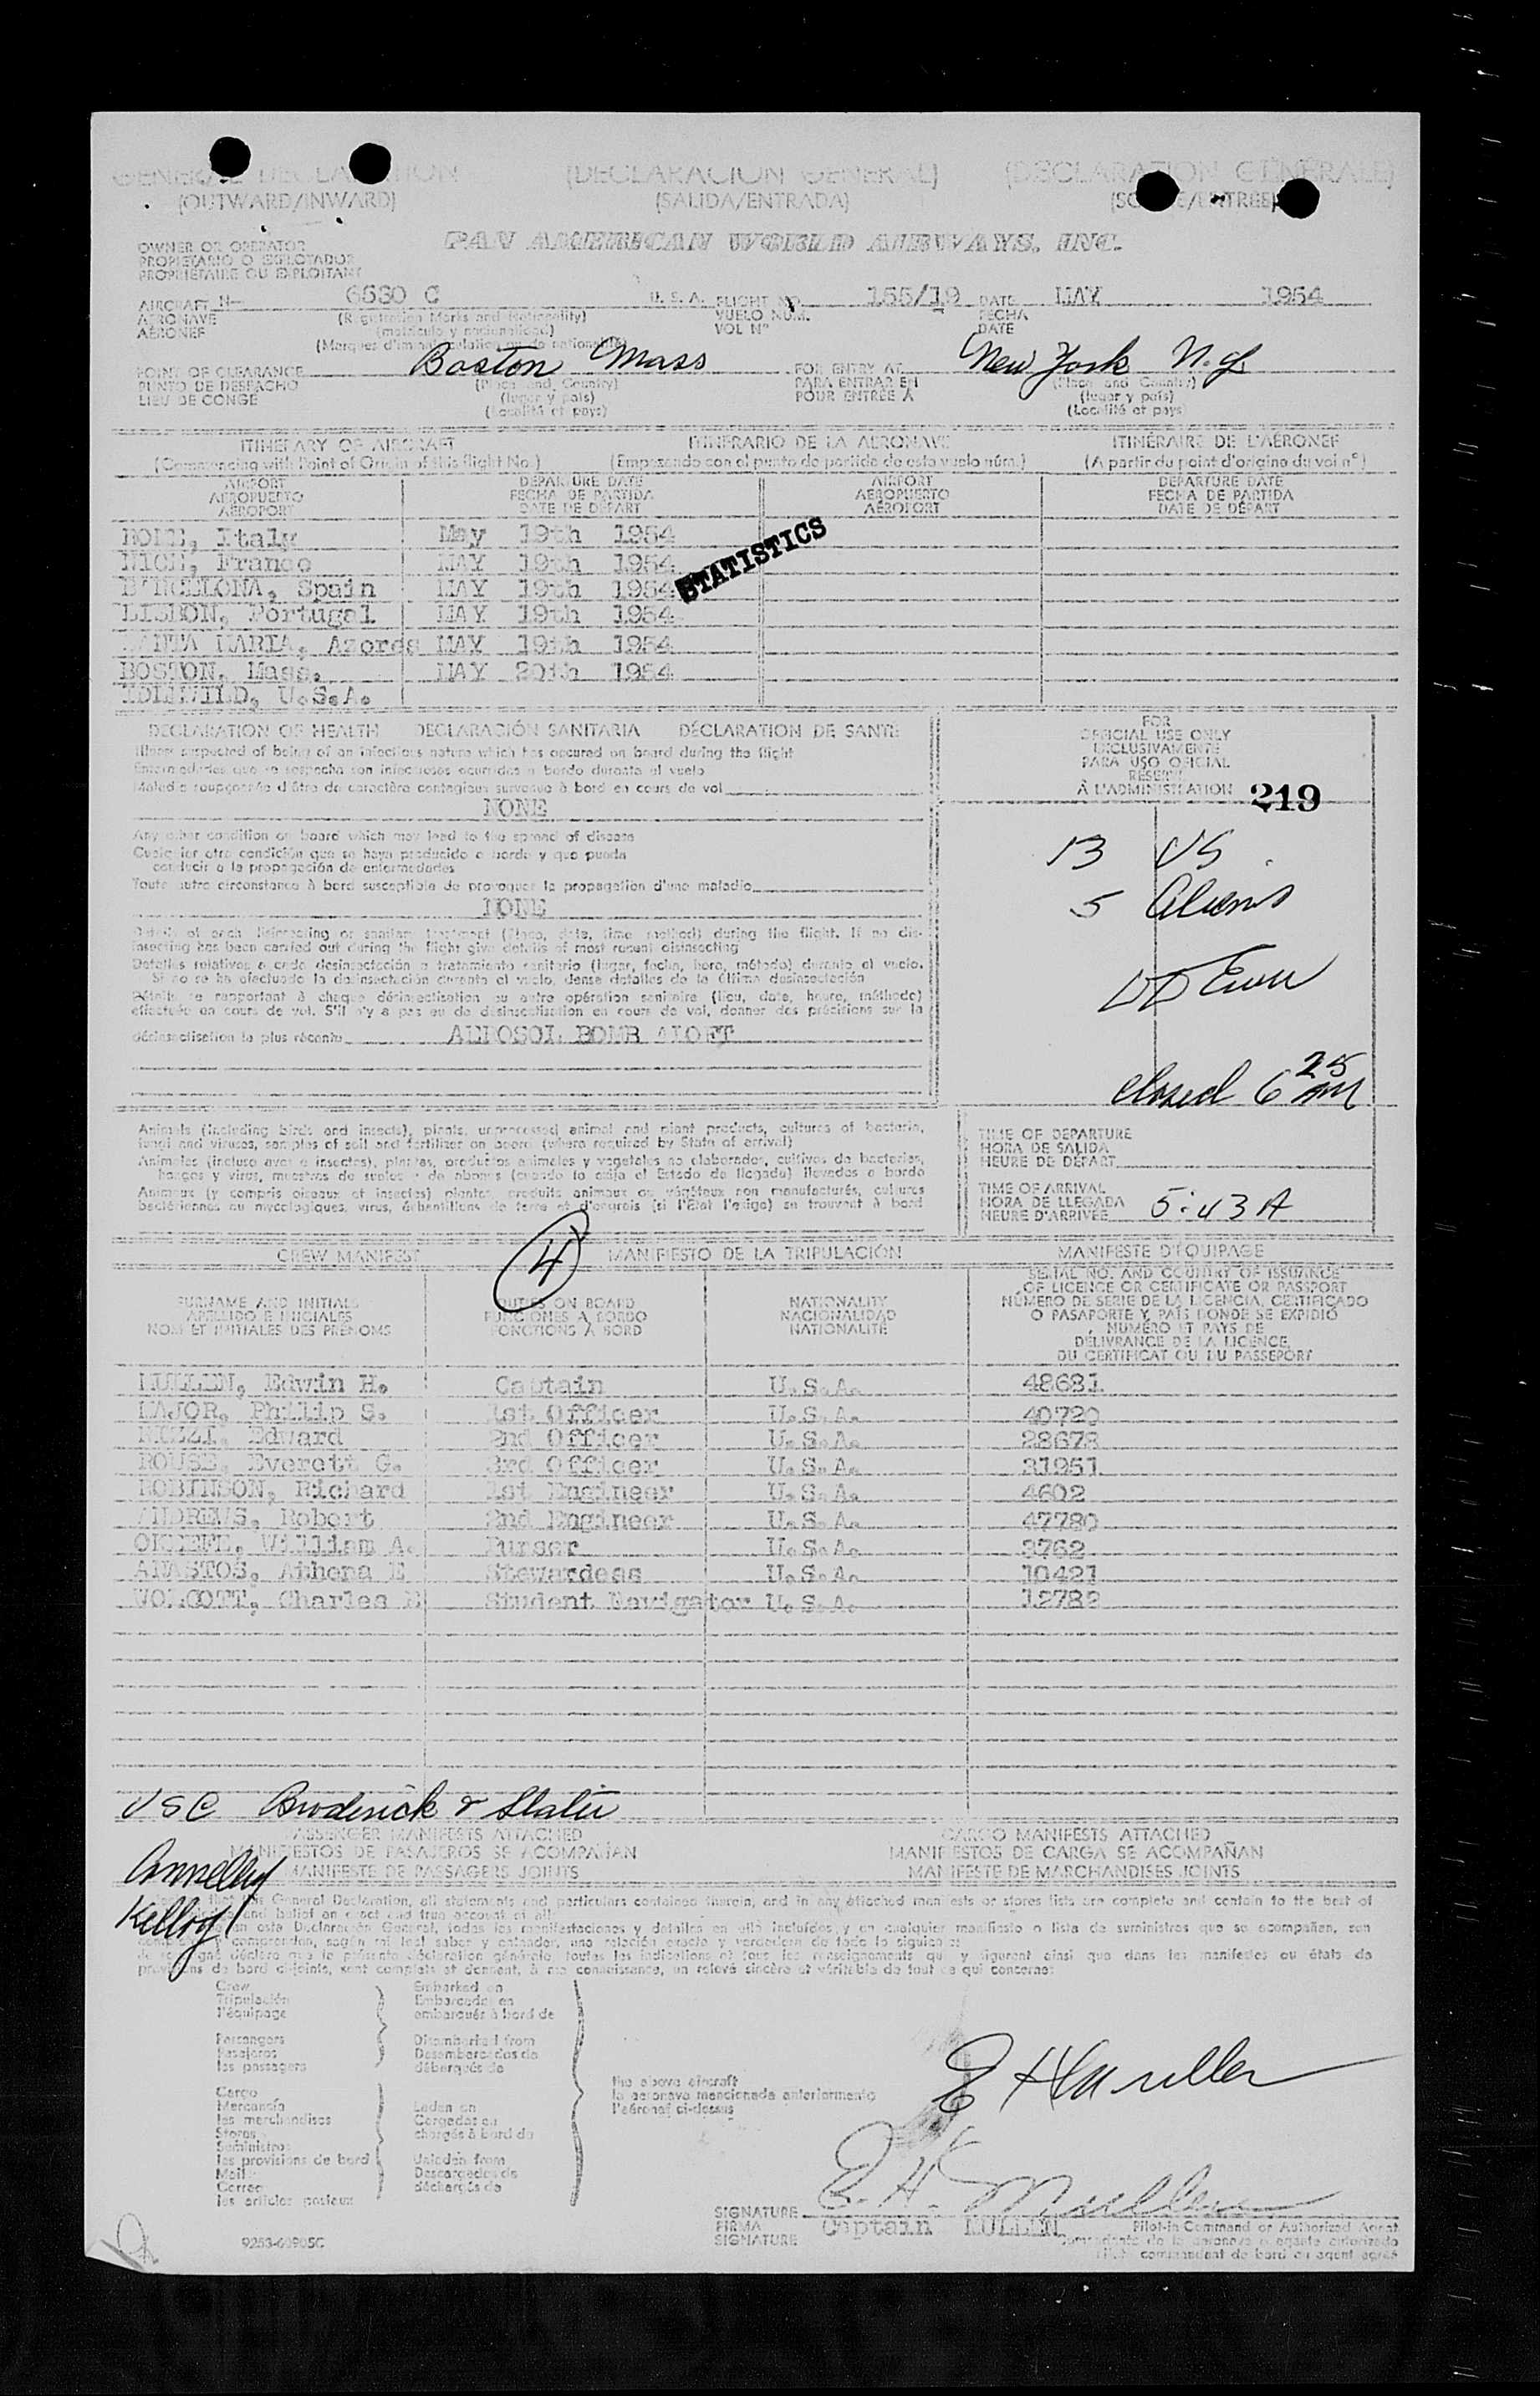 GENERAL DECLARATION (DECLARACION GENERAL) (DECLARATION GÉNÉRALE)
(OUTWARD/INWARD) (SALIDA/ENTRADA) (SORTIE/ENTREE)
OWNER OR OPERATOR PAN AMERICAN WORLD AIRWAYS, INC.
PROPIETARIO O EXPLOTADOR
PROPRIÉTAIRE OU EXPLOITANT
AIRCRAFT N- 6530 C U. S. A. FLIGHT NO. 155/19 DATE MAY 1954
AERONAVE (Registration Marks and Nationality) VUELO NUM. FECHA
AÉRONEF (matrícula y nacionalidad) VOL Nº DATE
(Marques d'immatriculation ou de nationalité)
POINT OF CLEARANCE Boston Mass FOR ENTRY AT New York N.Y.
PUNTO DE DESPACHO (Place and Country) PARA ENTRAR EN (Place and Country)
LIEU DE CONGÉ (lugar y país) POUR ENTRÉE A (lugar y país)
(Localité et pays) (Localité et pays)
ITINERARY OF AIRCRAFT ITINERARIO DE LA AERONAVE ITINÉRAIRE DE L'AÉRONEF
(Commencing with Point of Origin of this flight No.) (Empezando con el punto de partida de este vuelo núm.) (A partir du point d'origine du vol nº)
AIRPORT DEPARTURE DATE AIRPORT DEPARTURE DATE
AEROPUERTO FECHA DE PARTIDA AEROPUERTO FECHA DE PARTIDA
AÉROPORT DATE DE DÉPART AÉROPORT DATE DE DÉPART
ROME, Italy May 19th 1954
NICE, France MAY 19th 1954
STATISTICS
BARCELONA, Spain MAY 19th 1954
LISBON, Portugal MAY 19th 1954
SANTA MARIA, Azores MAY 19th 1954
BOSTON, Mass. MAY 20th 1954
IDLEWILD, U.S.A.
DECLARATION OF HEALTH DECLARACIÓN SANITARIA DÉCLARATION DE SANTÉ
Illness suspected of being of an infectious nature which has occured on board during the flight
Enfermedades que se sospecha son infecciosas ocurridas a bordo durante el vuelo
Maladie soupçonnée d'être de caractère contagieux survenue à bord en cours de vol
NONE
Any other condition on board which may lead to the spread of disease
Cualquier otra condición que se haya producido a bordo y que pueda
conducir a la propagación de enfermedades
Toute autre circonstance à bord susceptible de provoquer la propagation d'une maladie
NONE
Details of each disinsecting or sanitary treatment (Place, date, time method) during the flight. If no dis-
insecting has been carried out during the flight give details of most recent disinsecting
Detalles relativos a cada desinsectación o tratamiento sanitario (lugar, fecha, hora, método) durante el vuelo.
Si no se ha efectuado la desinsectación durante el vuelo, dense detalles de la última desinsectación
Détails se rapportant à chaque désinsectisation ou autre opération sanitaire (lieu, date, heure, méthode)
effectuée en cours de vol. S'il n'y a pas eu de désinsectisation en cours de vol, donner des précisions sur la
désinsectisation la plus récente AEROSOL BOMB ALOFT
FOR
OFFICIAL USE ONLY
EXCLUSIVAMENTE
PARA USO OFICIAL
RÉSERVÉ
À L'ADMINISTRATION 219
13 US
5 Aliens
closed 6 25 AM
Animals (including birds and insects), plants, unprocessed animal and plant products, cultures of bacteria,
fungi and viruses, samples of soil and fertilizer on board (where required by State of arrival)
Animales (incluso aves e insectos), plantas, productos animales y vegetales no elaborados, cultivos de bacterias,
hongos y virus, muestras de suelos y de abonos (cuando lo exija el Estado de llegada) llevados a bordo
Animaux (y compris oiseaux et insectes) plantes, produits animaux ou végétaux non manufacturés, cultures
bactériennes ou mycologiques, virus, échantillons de terre et d'engrais (si l'Etat l'exige) se trouvant à bord
TIME OF DEPARTURE
HORA DE SALIDA
HEURE DE DÉPART
TIME OF ARRIVAL
HORA DE LLEGADA 5:43 A
HEURE D'ARRIVÉE
CREW MANIFEST 4 MANIFIESTO DE LA TRIPULACIÓN MANIFESTE D'ÉQUIPAGE
SURNAME AND INITIALS
APELLIDO E INICIALES
NOM ET INITIALES DES PRÉNOMS
DUTIES ON BOARD
FUNCIONES A BORDO
FONCTIONS À BORD
NATIONALITY
NACIONALIDAD
NATIONALITÉ
SERIAL NO. AND COUNTRY OF ISSUANCE
OF LICENCE OR CERTIFICATE OR PASSPORT
NÚMERO DE SERIE DE LA LICENCIA, CERTIFICADO
O PASAPORTE Y PAÍS DONDE SE EXPIDIÓ
NUMÉRO ET PAYS DE
DÉLIVRANCE DE LA LICENCE,
DU CERTIFICAT OU DU PASSEPORT
MULLEN, Edwin H. Captain U.S.A. 48681
MAJOR, Phillip S. 1st Officer U.S.A. 40720
Edward 2nd Officer U.S.A. 28678
ROUSE, Everett G. 3rd Officer U.S.A. 31951
ROBINSON, Richard 1st Engineer U.S.A. 4602
ANDREWS, Robert 2nd Engineer U.S.A. 47780
OKEEFE, William A. Purser U.S.A. 3762
ANASTOS, Athena E Stewardess U.S.A. 10421
WOLCOTT, Charles Student Navigator U.S.A. 12782
USC Broderick & Slater
PASSENGER MANIFESTS ATTACHED CARGO MANIFESTS ATTACHED
MANIFIESTOS DE PASAJEROS SE ACOMPAÑAN MANIFIESTOS DE CARGA SE ACOMPAÑAN
MANIFESTE DE PASSAGERS JOINTS MANIFESTE DE MARCHANDISES JOINTS
Kellog
General Declaration, all statements and particulars contained therein, and in any attached manifests or stores lists are complete and contain to the best of
and belief an exact and true account of all
en esta Declaración General, todas las manifestaciones y detalles en ella incluídos y en cualquier manifiesto o lista de suministros que se acompañan, son
comprenden, según mi leal saber y entender, una relación exacta y verdadera de todo lo siguiente:
déclare que la présente déclaration générale toutes les indications et tous les renseignements qui y figurent ainsi que dans les manifestes ou états de
provisions de bord ci-joints, sont complets et donnent, à ma connaissance, un relevé sincère et véritable de tout ce qui concerne:
Crew
Tripulación
l'équipage
Passengers
Pasajeros
les passagers
Cargo
Mercancía
les merchandises
Stores
Suministros
les provisions de bord
Mail
Correo
les articles postaux
Embarked on
Embarcado en
embarqués à bord de
Disembarked from
Desembarcados de
débarqués de
Laden on
Cargadas en
chargés à bord de
Unladen from
Descargados de
déchargés de
the above aircraft
la aeronave mencionada anteriormente
l'aéronef ci-dessus
E H Mullen
E. H. Mullen
SIGNATURE Captain MULLEN Pilot-in Command or Authorized Agent
FIRMA Comandante de la aeronave o agente autorizado
SIGNATURE Pilote commandant de bord ou agent agréé
9253-60905C